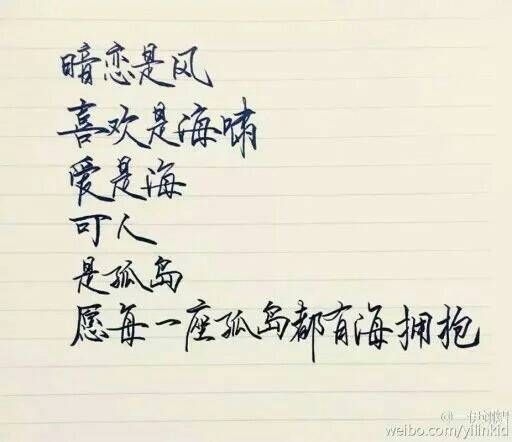 暗恋是风
喜欢是海啸
爱是海
可人
是孤岛
愿每一座孤岛都有海拥抱
weibo.com/yilinkid